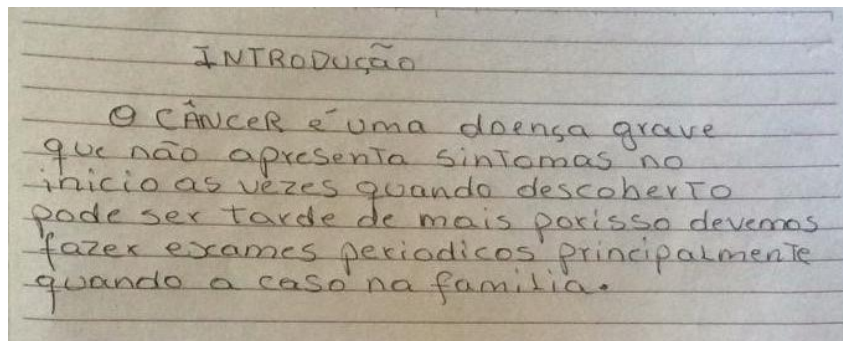 INTRODUÇÃO
O CÂNCER é uma doença grave
que não apresenta sintomas no
inicio as vezes quando descoberto
pode ser tarde de mais porisso devemos
fazer exames periodicos principalmente
quando a caso na familia.